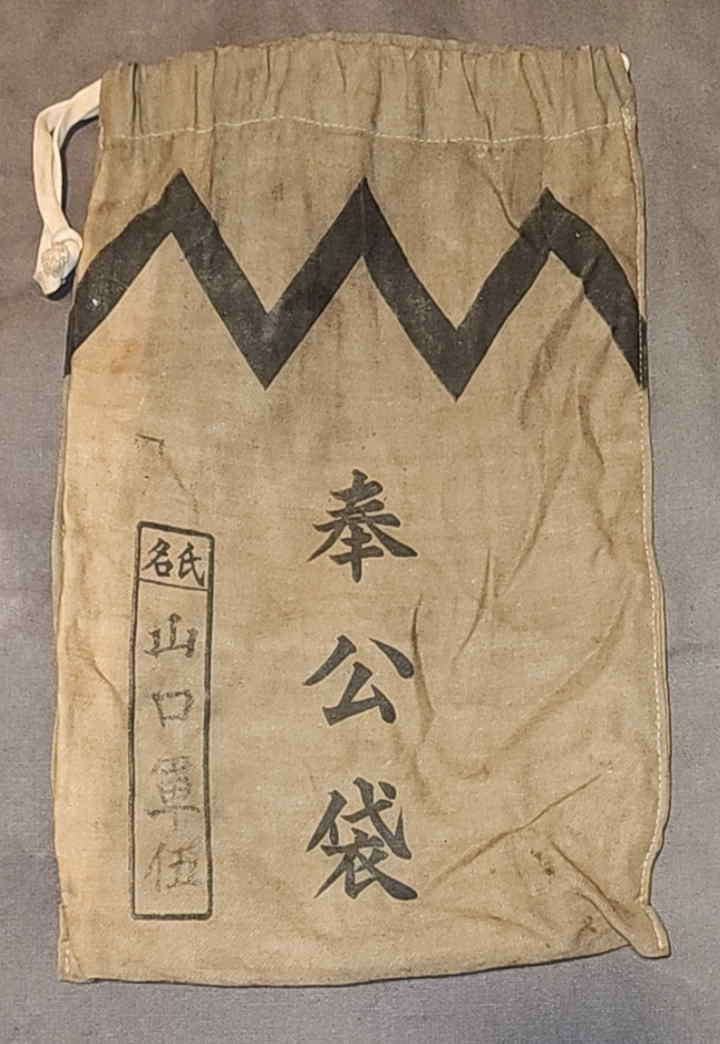 奉公袋
氏名
山口軍伍